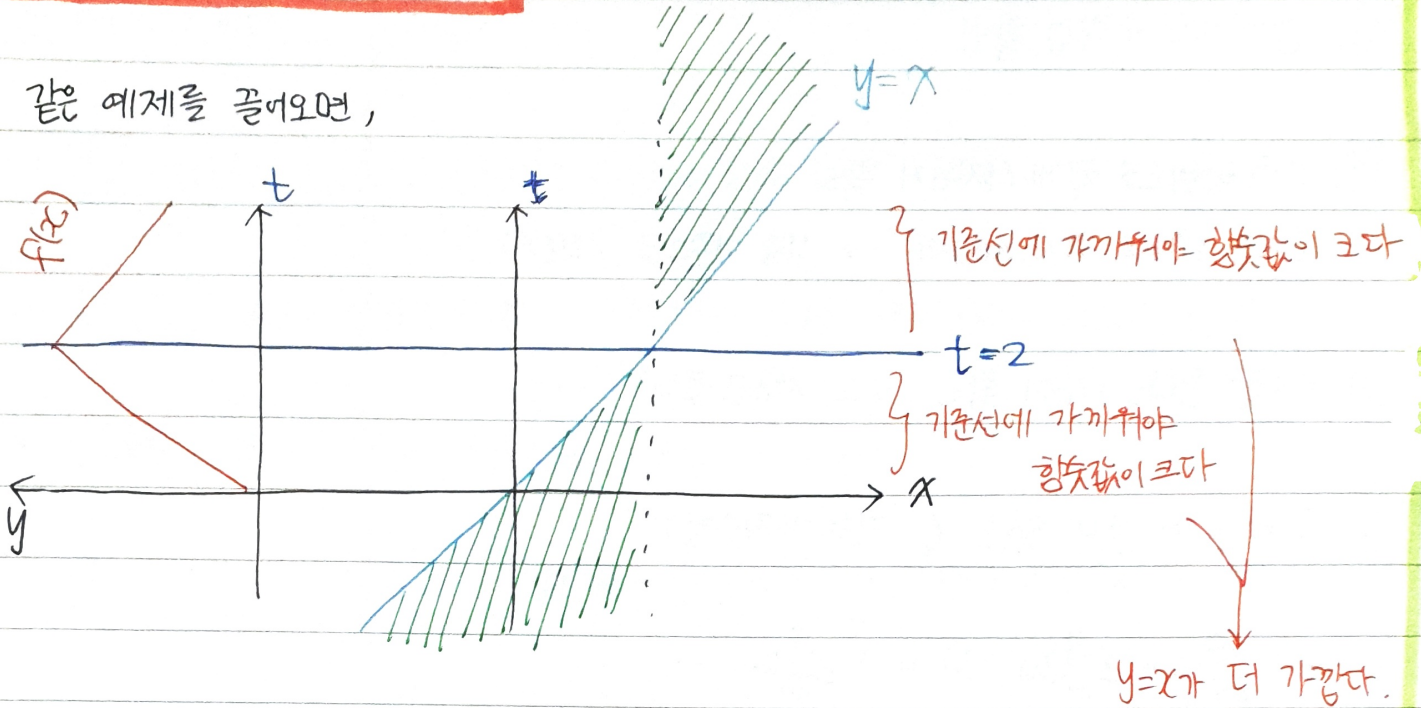 같은 예제를 끌어오면,
y=x
f(x)
t
t
기준선에 가까워야 함숫값이 크다
t=2
기준선에 가까워야
함숫값이 크다
x
y
y=x가 더 가깝다.